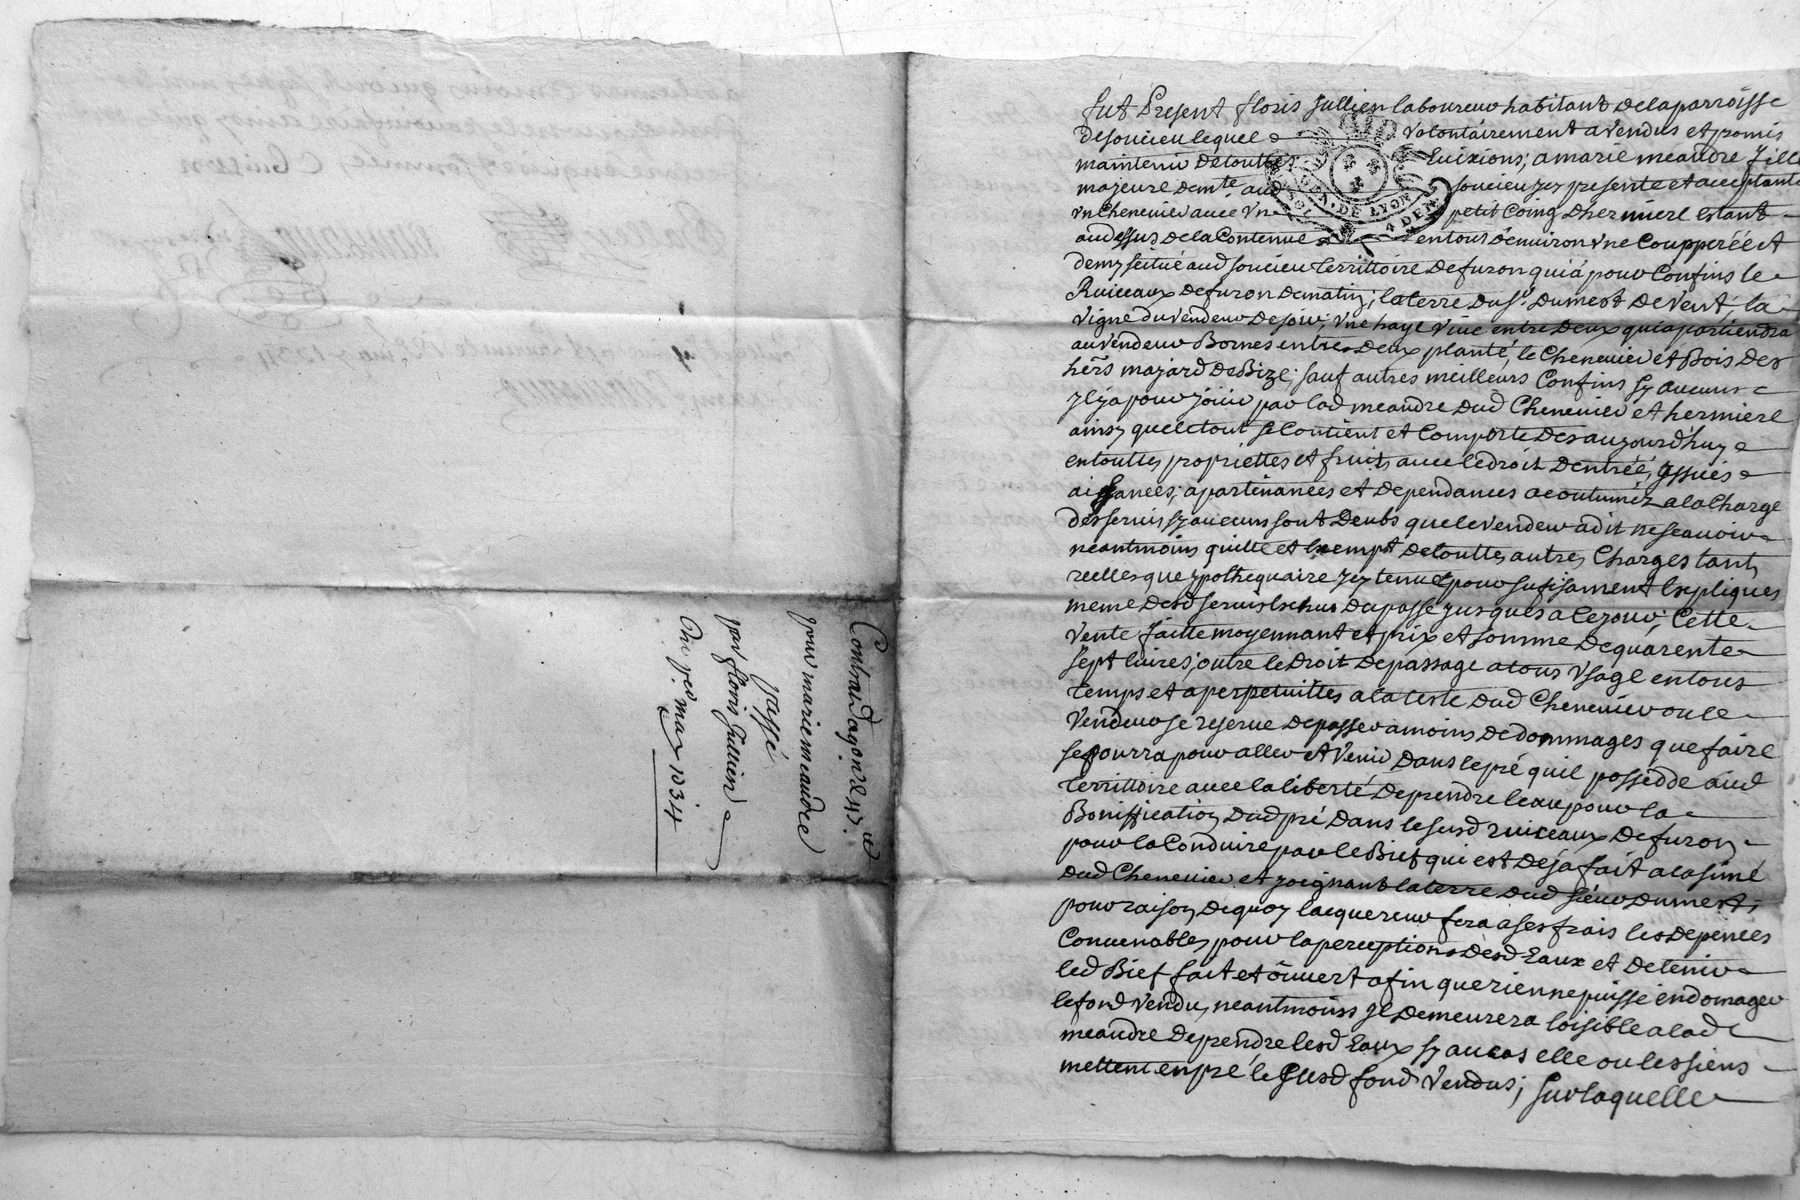 Contract d'aqon 2# 15s
pour marie meandre
passé
par floris Jullien
Du per may 1734
fut Present floris Jullien laboureur habitant de la parroisse
de soucieu lequel volontairement a vendus et promis
maintenir de touttes Euixions; a marie meandre fille
majeure demte aud soucieu jcy presente et acceptante
vn Chenevier avec vn petit Coing d'hermiere estant
au dessus de la Contenue en tout d'enuiron vne Coupperéé et
demy scitué aud soucieu territtoire de furon qui a pour Confins le
Ruiceaux de furon de matin; la terre du sr. Dumest de vent; la
vigne du vendeur de soir; vne haye viue entre deux qui apartiendra
au vendeur Bornes entre deux planté, le Chenevier et Bois des
hers majard de Bize; sauf autres meilleurs Confins sy aucuns
jl y a pour jöüir par lad meandre dud Chenevier et hermiere
ainsy que le tout se Contient et Comporte des aujourd'huy
en touttes propriettes et fruits avec le droit d'entréé, yssuës
aisances, apartenances et dependances acoutuméz a la Charge
des seruis sy aucuns sont deubs que le vendeur a dit ne scauoir
neantmoins quitte et Exempt de touttes autres Charges tant
reelles que ypothequaire jcy tenues pour sufisament Expliques
meme desd seruis Echus du passé jusques a Ce jour; Cette
vente faitte moyennant et prix et somme de quarente
sept liures; outre le droit de passage a tous vsage en tous
temps et a perpetuittes a la teste dud Chenevier ou le
vendeur se reserue de passer a moins de dommages que faire
se pourra pour aller et venir dans le pré qu'il possedde aud
territtoire avec la liberté de prendre l'eau pour la
Boniffication dud pré dans le susd ruiceaux de furon
pour la Conduire par le Bief qui est deja fait a la sime
dud Chenevier et joignant la terre dud sieur Dumest;
pour raison de quoy l'acquereur fera a ses frais les depences
Conuenables pour la perceptions desd Eaux et de tenir
led Bief fait et ouuert afin que rien ne puisse endomager
le fond vendu, neantmoins jl demeurera loisible a lad
meandre de prendre lesd Eaux sy au cas elle ou les siens
mettent en pré le susd fond vendus; sur laquelle